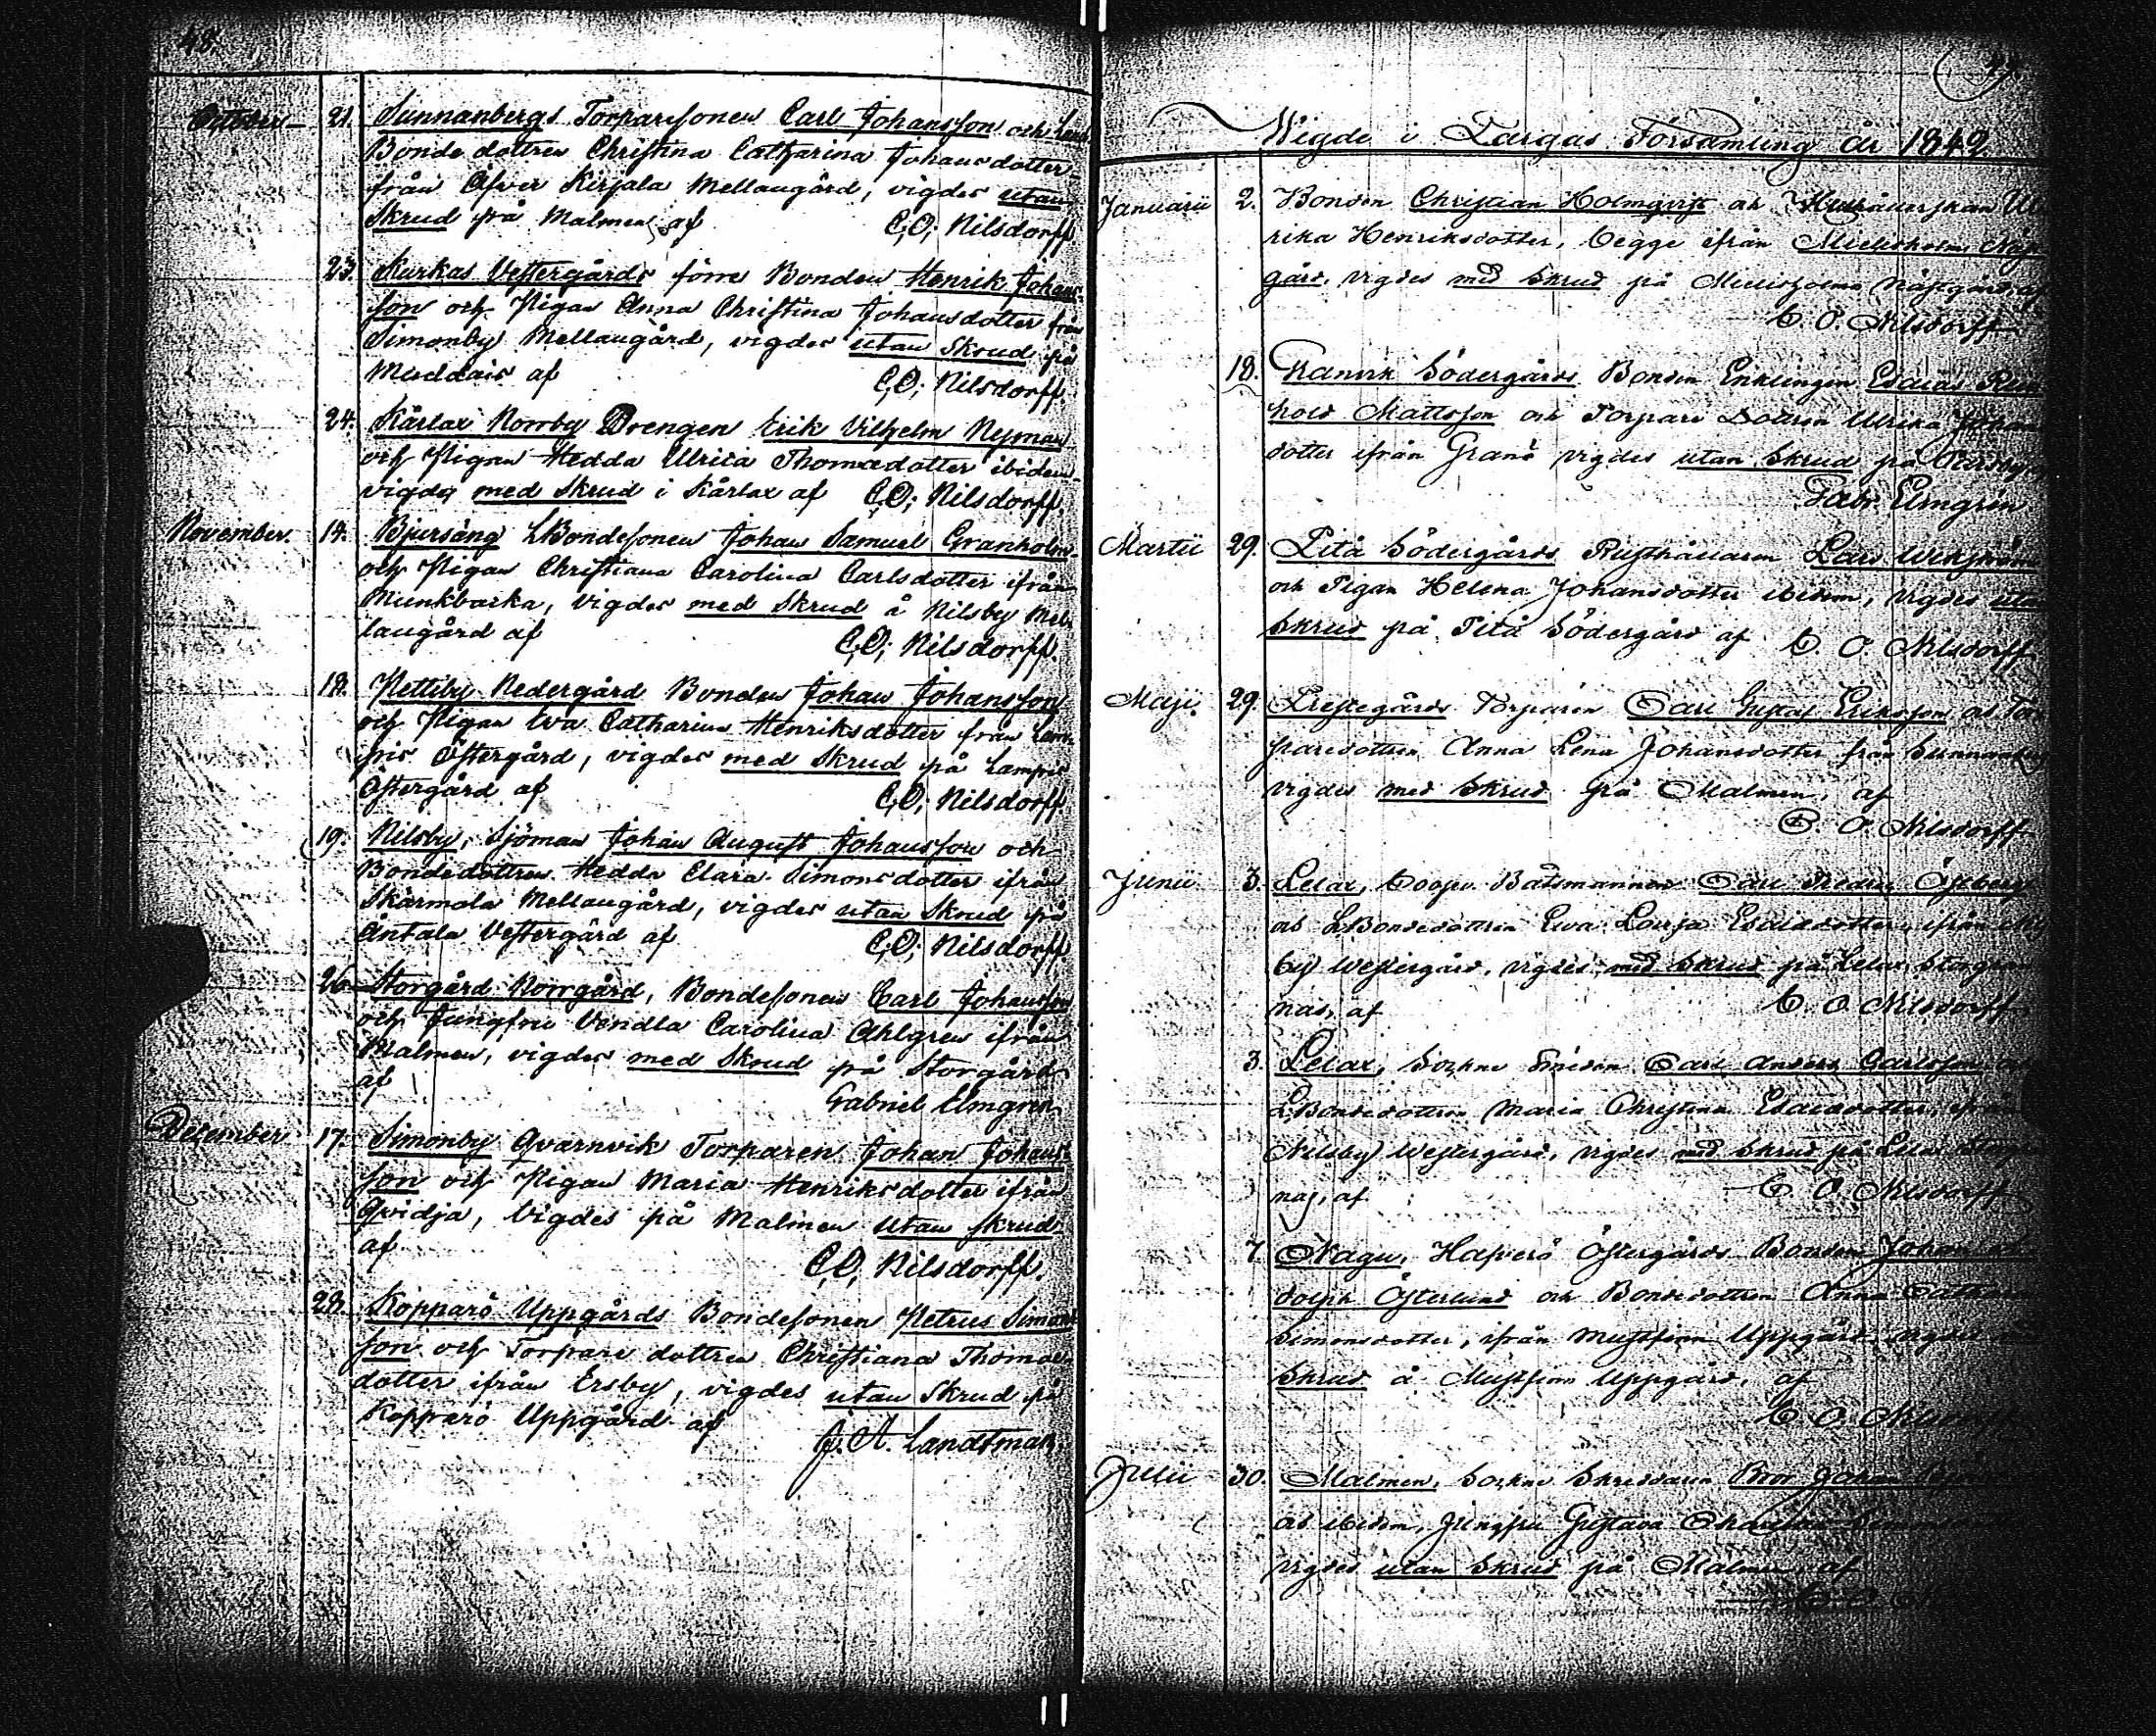 48.
October 21. Sunnanbergs Torparesonen Carl Johansson och
Bonde dottren Christina Catharina Johansdotter
från Ofver Kirjala Mellangård, vigdes utan
Skrud på Malmen af C. O. Nilsdorff.
23. Kurkas Vestergårds förre Bonden Henrik Johans-
son och Pigan Anna Christina Johansdotter från
Simonby Mellangård, vigdes utan Skrud på
Muddais af C. O. Nilsdorff.
24. Kårlax Norrby Drengen Erik Vilhelm Nyman
och Pigan Hedda Ulrica Thomædotter ibidem
vigdes med Skrud i Kårlax af C. O. Nilsdorff.
November. 14. Bjursäng LBondesonen Johan Samuel Granholm
och Pigan Christiana Carolina Carlsdotter ifrån
Munkbacka, Vigdes med Skrud å Nilsby Mel-
langård af C. O. Nilsdorff.
18. Pettiby Nedergård Bonden Johan Johansson
och Pigan Eva Catharina Henriksdotter från Lam-
pis Östergård, vigdes med Skrud på Lampis
Östergård af C. O. Nilsdorff
19. Nilsby, Sjöman Johan August Johansson och
Bondedottren Hedda Clara Simonsdotter ifrån
Skärmola Mellangård, vigdes utan Skrud på
Antala Vestergård af C. O. Nilsdorff
26. Storgård Norrgård, Bondesonen Carl Johansson
och Jungfru Vendla Carolina Ahlgren ifrån
Malmen, vigdes med Skrud på Storgård
af Gabriel Elmgren
December 17. Simonby Qvarnvik Torparen Johan Johans-
son och Pigan Maria Henriksdotter ifrån
Qvidja, Vigdes på Malmen utan skrud
af C. O. Nilsdorff.
28. Kopparö Uppgårds Bondesonen Petrus Simons-
son och Torpare dottren Christiana Thomæ-
dotter ifrån Ersby, vigdes utan Skrud på
Kopparö Uppgård af J. A. Landtman.
Wigde i Pargas Församling år 1849
Januarii 2. Bonden Christian Holmqvist och Ul
rika Henriksdotter, begge ifrån Mielisholm
gård, vigdes med Skrud på Mielisholms
C. O. Nilsdorff
18. Södergårds Bonden Enklingen Esaias Rein
hold Mattsson och Torpare Dottren Ulrika Johans
dotter ifrån Granö vigdes utan Skrud på
Gabr. Elmgren
Martii 29. Södergårds Rusthållaren Lars
och Pigan Helena Johansdotter ibidem, vigdes utan
Skrud på Södergård af C. O. Nilsdorff
Maji. 29. Prestegårds Torparen Carl Gustaf Eriksson och Tor
paredottren Anna Lena Johansdotter från Sunnanberg
vigdes med Skrud på Malmen, af
C. O. Nilsdorff
Junii 3. Lelax, Båtsmannen Carl Fredric Östberg
och LBondedottren Eva Lovisa Esaiædotter, ifrån
by Westergård, vigdes med Skrud på Lelax
näs, af C. O. Nilsdorff
3. Lelax, Sockne Smeden Carl Anders Carlsson
LBondedottren Maria Christina Esaiædotter, ifrån
Nilsby Westergård, vigdes med Skrud på Lelax
näs, af C. O. Nilsdorff
7. Nagu, Haverö Östergårds Bonden Johan
dolph Österlund och Bondedottren Anna Cathar
Simonsdotter, ifrån Mustfinn Uppgård, vigdes
Skrud å Mustfinn Uppgård, af
C. O. Nilsdorff
Julii 30. Malmen, Sockne Skreddaren Johan
och ibidem, Jungfru Gustava
vigdes utan Skrud på Malmen af